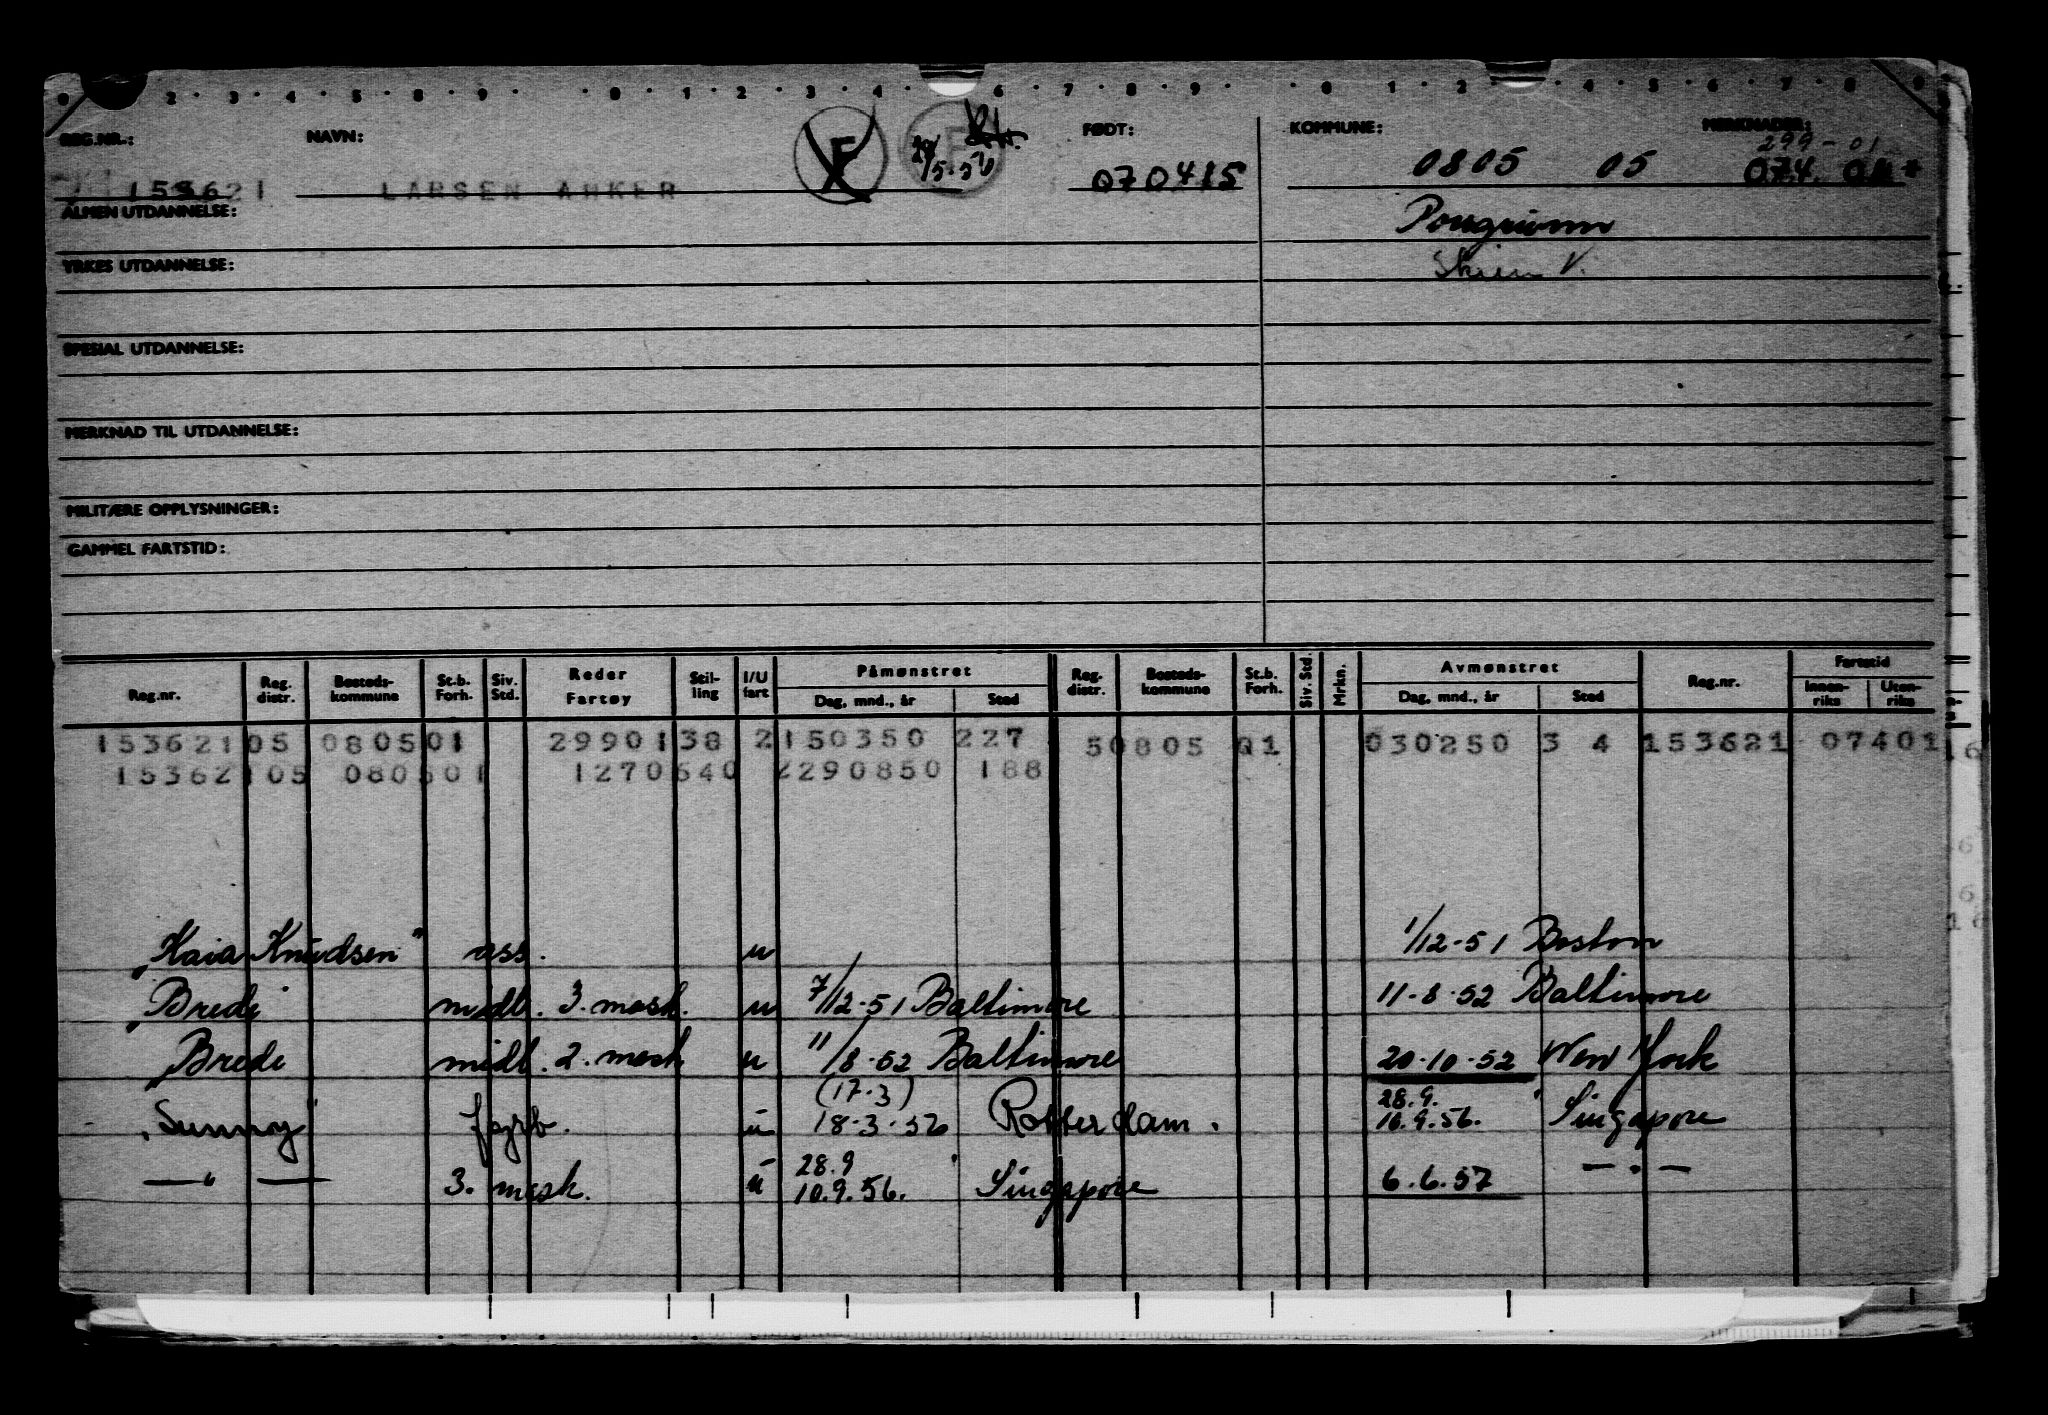 0 2 3 4 5 8 9 0 1 2 3 4 6 7 8 9 0 1 2 4 5 6 7 8 9
REG.NR.: NAVN: FØDT: KOMMUNE: MERKNADER:
299-01
153621 LARSEN ANKER F F 29/5.50 070415 0805 05 074.01
ALMEN UTDANNELSE: Porsgrunn
YRKES UTDANNELSE: Skien V.
SPESIAL UTDANNELSE:
MERKNAD TIL UTDANNELSE:
MILITÆRE OPPLYSNINGER:
GAMMEL FARTSTID:
Reg.nr. Reg. distr. Bosteds-kommune St.b. Forh. Siv. Std. Reder Fartøy Stil-ling I/U fart Påmønstret Dag, mnd., år Sted Reg. distr. Bosteds-kommune St.b. Forh. Siv. Std. Mrkn. Avmønstret Dag, mnd., år Sted Reg.nr. Fartstid Innen-riks Uten-riks
153621 05 0805 01 29901 38 2 150350 227 5 0805 01 030250 3 4 153621 07401
153621 05 0805 01 12706 40 2 290850 188
"Kaia Knudsen" ass. u 1/12-51 Boston
"Brede" midl. 3. mask. u 7/12-51 Baltimore 11-8-52 Baltimore
"Brede midl. 2. mask u 11/8-52 Baltimore 20-10-52 New York
(17-3) 28.9.
"Sunny" fyrb. u 18-3-56 Rotterdam. 10.9.56. Singapore
28.9
—"— 3. mask. u 10.9.56. Singapore 6.6.57 —"—